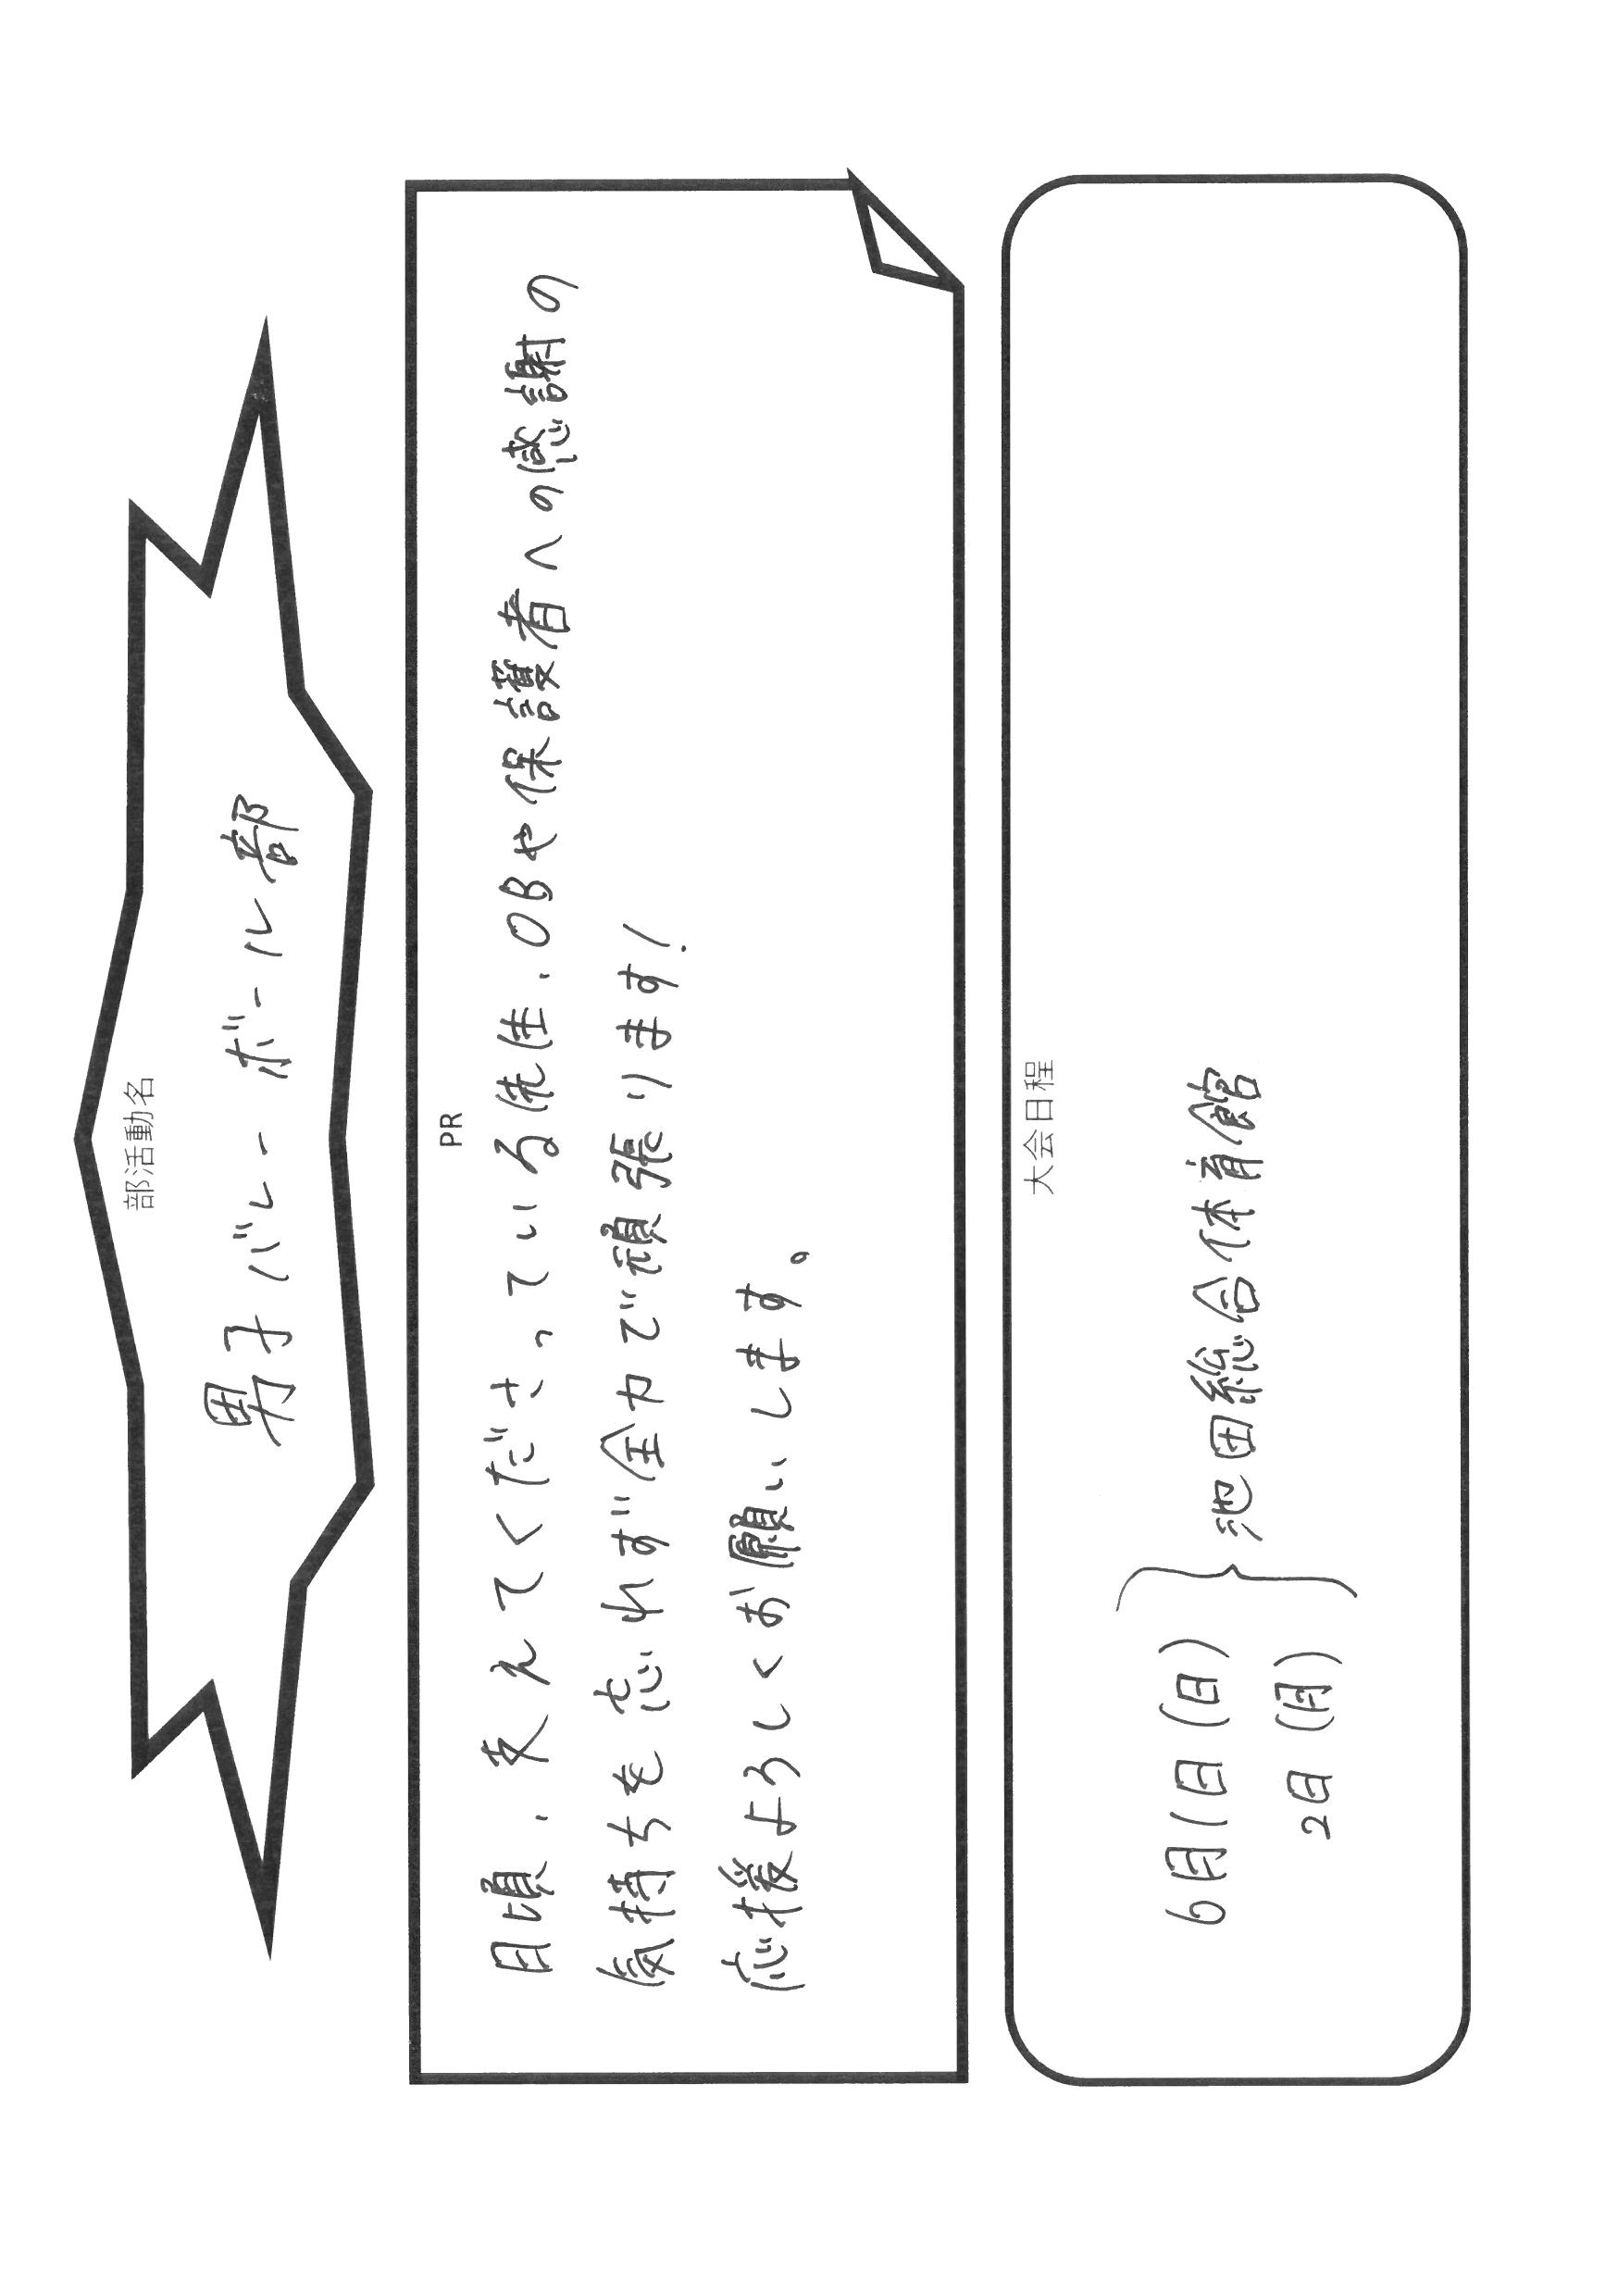 部活動名
男子バレーボール部
PR
日頃、支えてくださっている先生、OBや保護者への感謝の
気持ちを忘れず全力で頑張ります!
応援よろしくお願いします。
大会日程
6月1日(日)
2日(月)
池田総合体育館